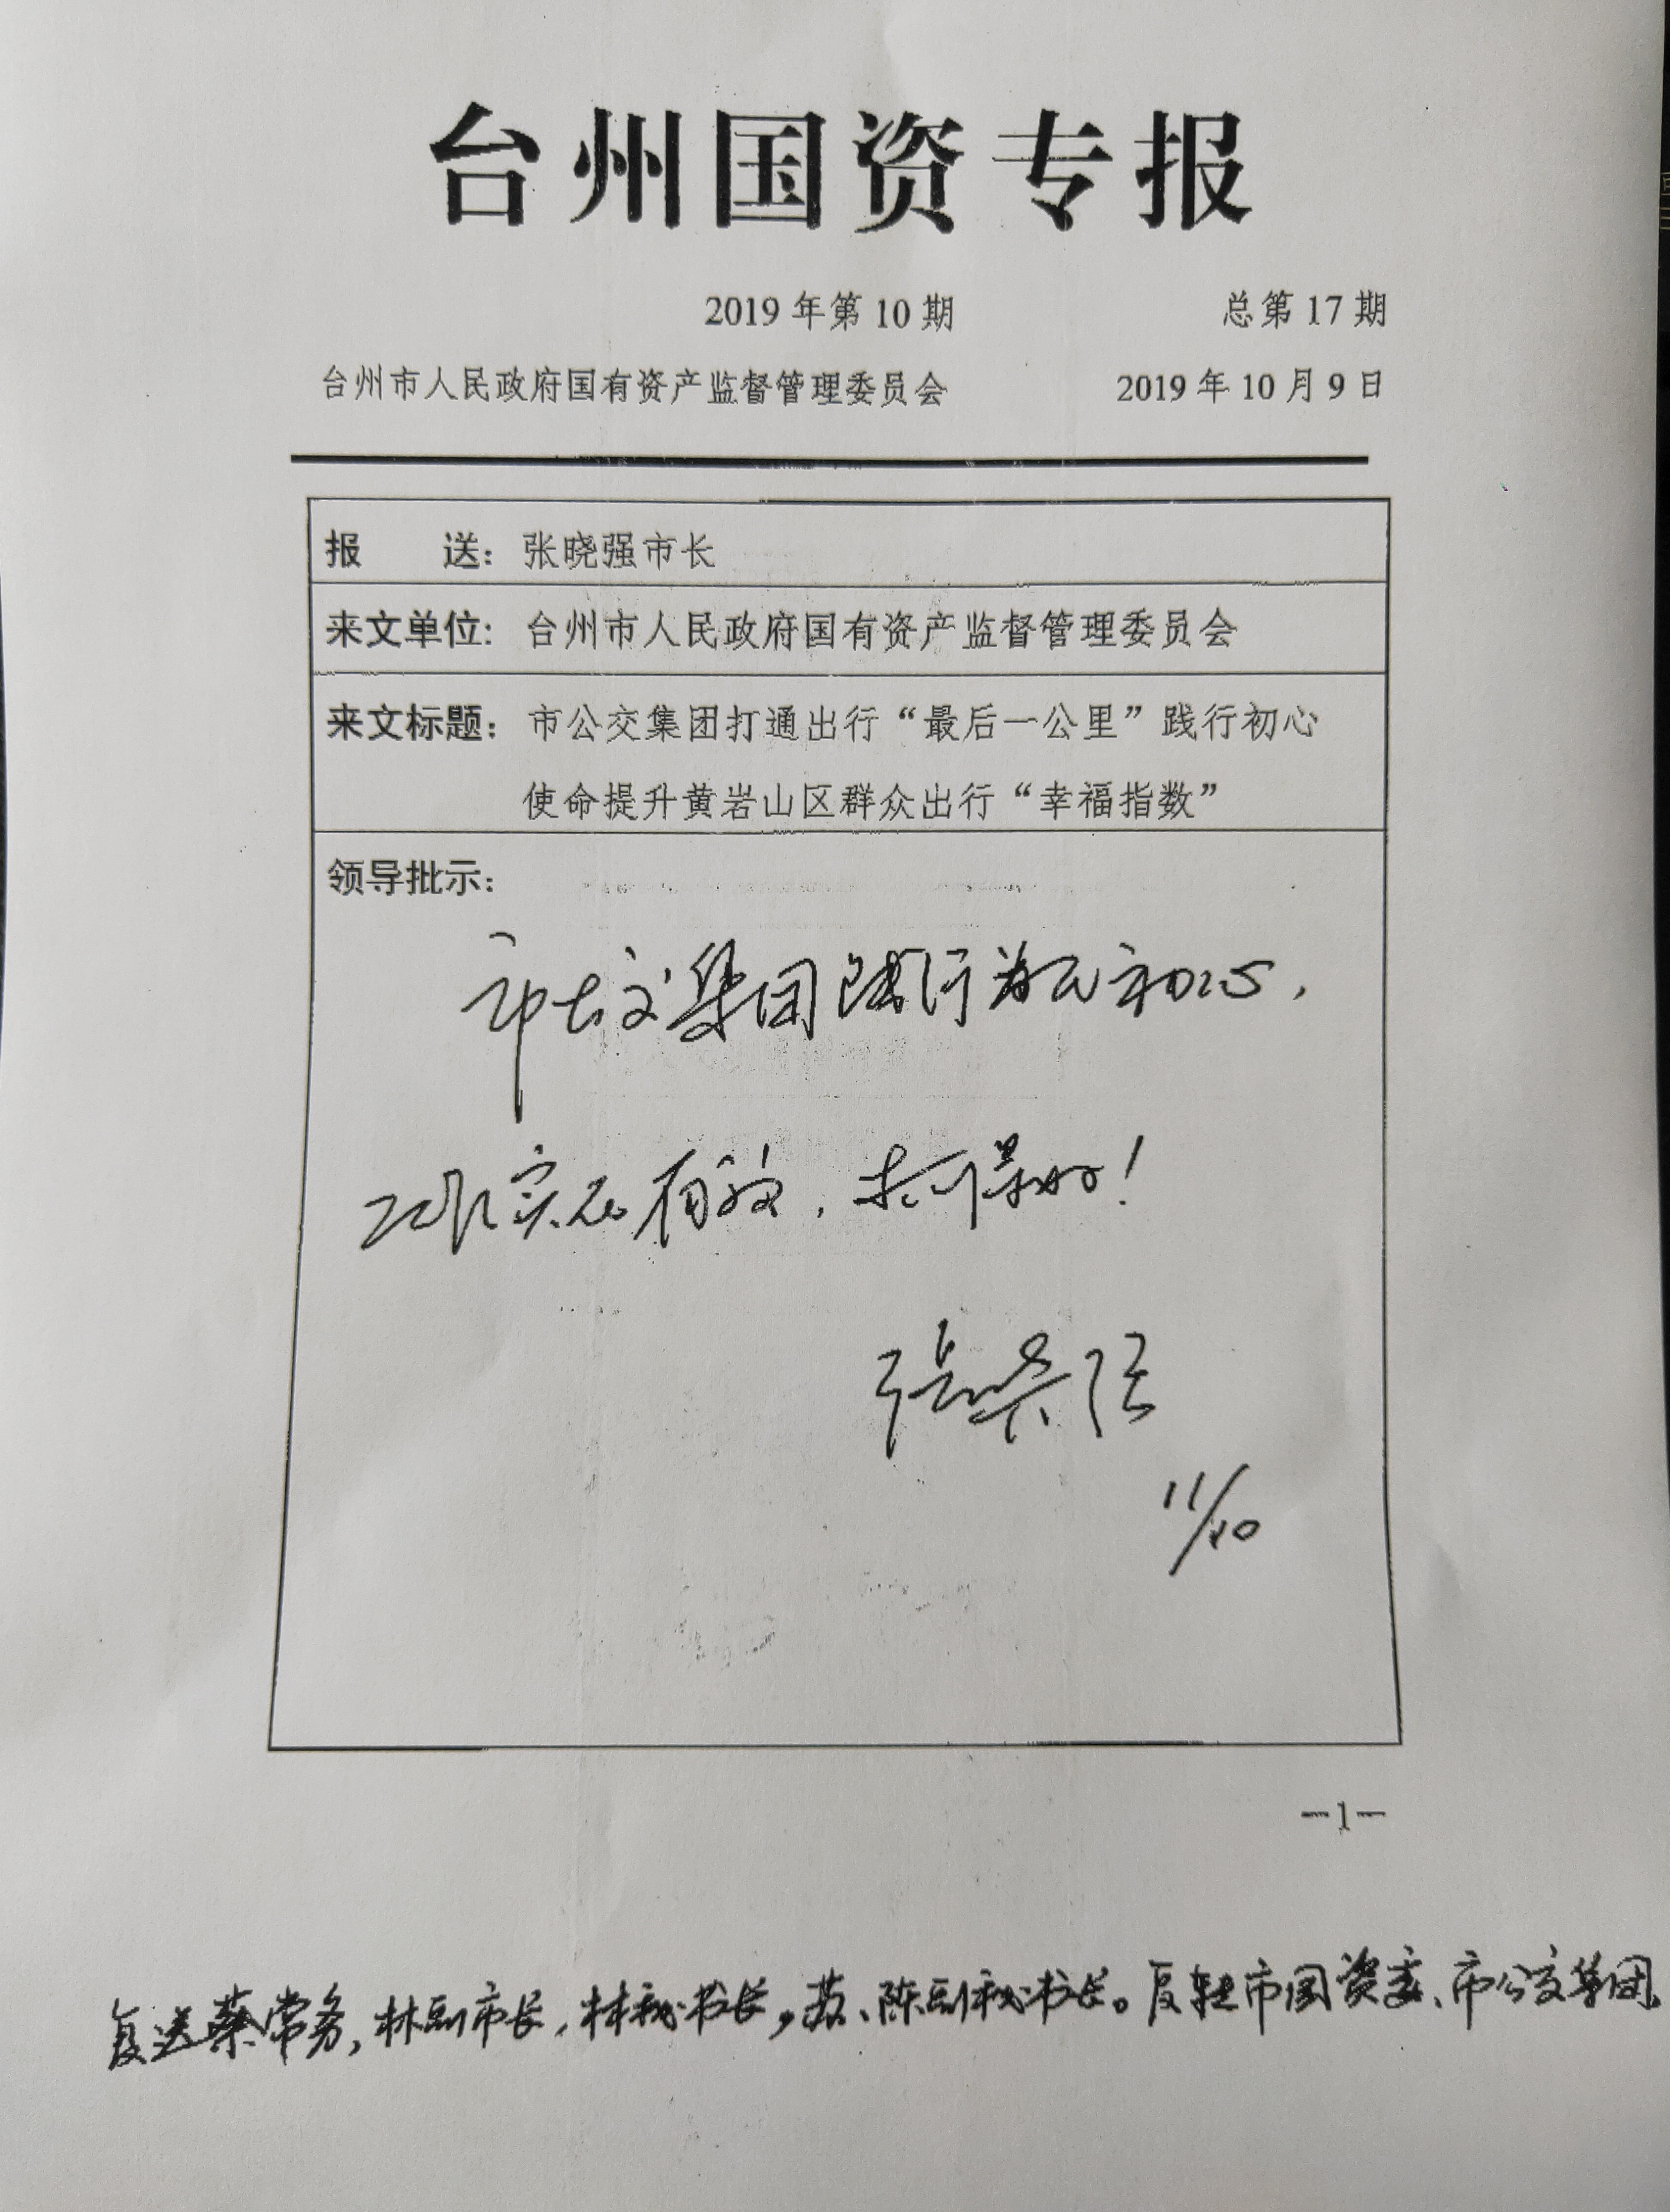 台州国资专报
2019 年第 10 期 总第 17 期
台州市人民政府国有资产监督管理委员会 2019 年 10 月 9 日
报 送：张晓强市长
来文单位：台州市人民政府国有资产监督管理委员会
来文标题：市公交集团打通出行“最后一公里”践行初心
使命提升黄岩山区群众出行“幸福指数”
领导批示：
市公交集团践行为民初心，
实在有效，
张晓强
11/10
—1—
复送蔡常务，林副市长，林秘书长，苏、陈副秘书长。复转市国资委、市公交集团。